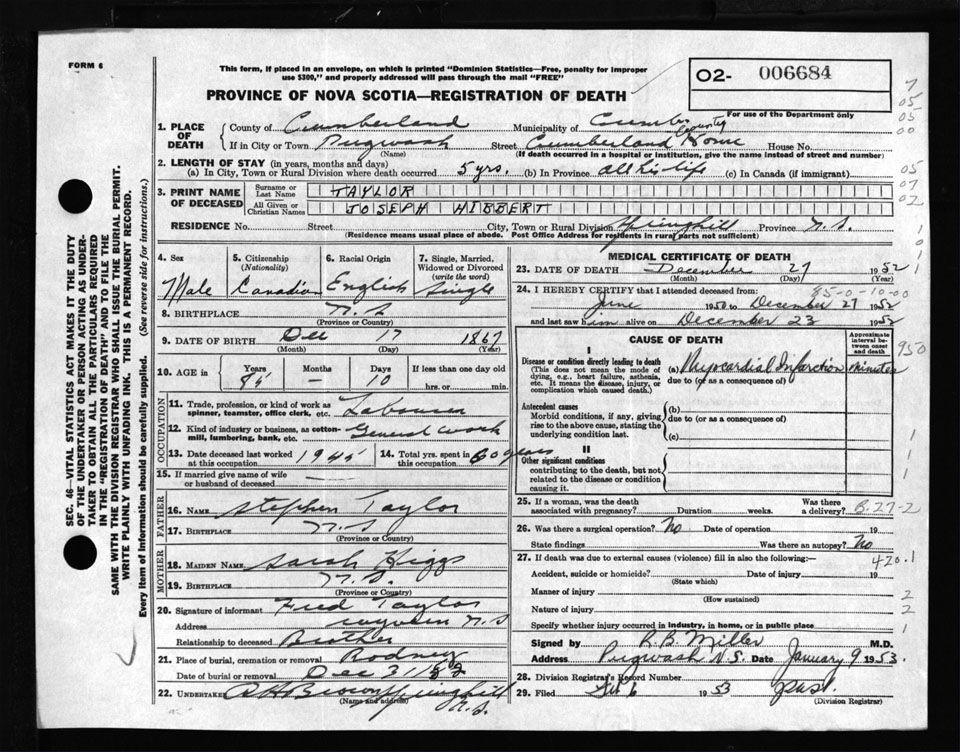 FORM 6
This form, if placed in an envelope, on which is printed "Dominion Statistics—Free, penalty for improper
use $300," and properly addressed will pass through the mail "FREE"
02- 006684
For use of the Department only
PROVINCE OF NOVA SCOTIA—REGISTRATION OF DEATH
SEC. 46—VITAL STATISTICS ACT MAKES IT THE DUTY
OF THE UNDERTAKER OR PERSON ACTING AS UNDER-
TAKER TO OBTAIN ALL THE PARTICULARS REQUIRED
IN THE "REGISTRATION OF DEATH" AND TO FILE THE
SAME WITH THE DIVISION REGISTRAR WHO SHALL ISSUE THE BURIAL PERMIT.
WRITE PLAINLY WITH UNFADING INK. THIS IS A PERMANENT RECORD.
Every item of information should be carefully supplied. (See reverse side for instructions.)
1. PLACE OF DEATH
County of Cumberland Municipality of Cumber County
If in City or Town Pugwash Street Cumberland Home House No.
(Name) (If death occurred in a hospital or institution, give the name instead of street and number)
2. LENGTH OF STAY (in years, months and days)
(a) In City, Town or Rural Division where death occurred 5 yrs. (b) In Province all his life (c) In Canada (if immigrant)
3. PRINT NAME OF DECEASED
Surname or Last Name TAYLOR
All Given or Christian Names JOSEPH HIBBERT
RESIDENCE No. Street City, Town or Rural Division Springhill Province N.S.
(Residence means usual place of abode. Post Office Address for residents in rural parts not sufficient)
4. Sex Male
5. Citizenship (Nationality) Canadian
6. Racial Origin English
7. Single, Married, Widowed or Divorced (write the word) Single
8. BIRTHPLACE N.S.
(Province or Country)
9. DATE OF BIRTH Dec 17 1867
(Month) (Day) (Year)
10. AGE in Years 85 Months — Days 10 If less than one day old
hrs. or min.
OCCUPATION
11. Trade, profession, or kind of work as
spinner, teamster, office clerk, etc. Labourer
12. Kind of industry or business, as cotton-
mill, lumbering, bank, etc. General work
13. Date deceased last worked
at this occupation 1945
14. Total yrs. spent in
this occupation 60 years
15. If married give name of wife
or husband of deceased —
FATHER
16. NAME Stephen Taylor
17. BIRTHPLACE N.S
(Province or Country)
MOTHER
18. MAIDEN NAME Sarah Higgs
19. BIRTHPLACE N.S.
(Province or Country)
20. Signature of informant Fred Taylor
Address N.S
Relationship to deceased Brother
21. Place of burial, cremation or removal Rodney
Date of burial or removal Dec 31/52
22. UNDERTAKER Brown Springhill
(Name and address) N.S.
MEDICAL CERTIFICATE OF DEATH
23. DATE OF DEATH December 27 1952
24. I HEREBY CERTIFY that I attended deceased from: 85-0-10-00
June 1950 to December 27 1952
and last saw him alive on December 23 1952
CAUSE OF DEATH
Approximate interval between onset and death
I
Disease or condition directly leading to death
(This does not mean the mode of
dying, e.g., heart failure, asthenia,
etc. It means the disease, injury, or
complication which caused death.)
(a) Myocardial Infarction minutes
due to (or as a consequence of)
Antecedent causes
Morbid conditions, if any, giving
rise to the above cause, stating the
underlying condition last.
(b)
due to (or as a consequence of)
(c)
II
Other significant conditions
contributing to the death, but not
related to the disease or condition
causing it.
25. If a woman, was the death
associated with pregnancy? Duration weeks. Was there a delivery? B-27-2
26. Was there a surgical operation? No Date of operation 19
State findings Was there an autopsy? No
27. If death was due to external causes (violence) fill in also the following:— 420.1
Accident, suicide or homicide? Date of injury 19
(State which)
Manner of injury
(How sustained)
Nature of injury
Specify whether injury occurred in industry, in home, or in public place
Signed by R.B. Miller M.D.
Address Pugwash N.S. Date January 9 1953.
28. Division Registrar's Record Number
29. Filed 1953
(Division Registrar)
7
05
05
00
05
07
02
1
0
1
1
950
1
1
1
2
2
1